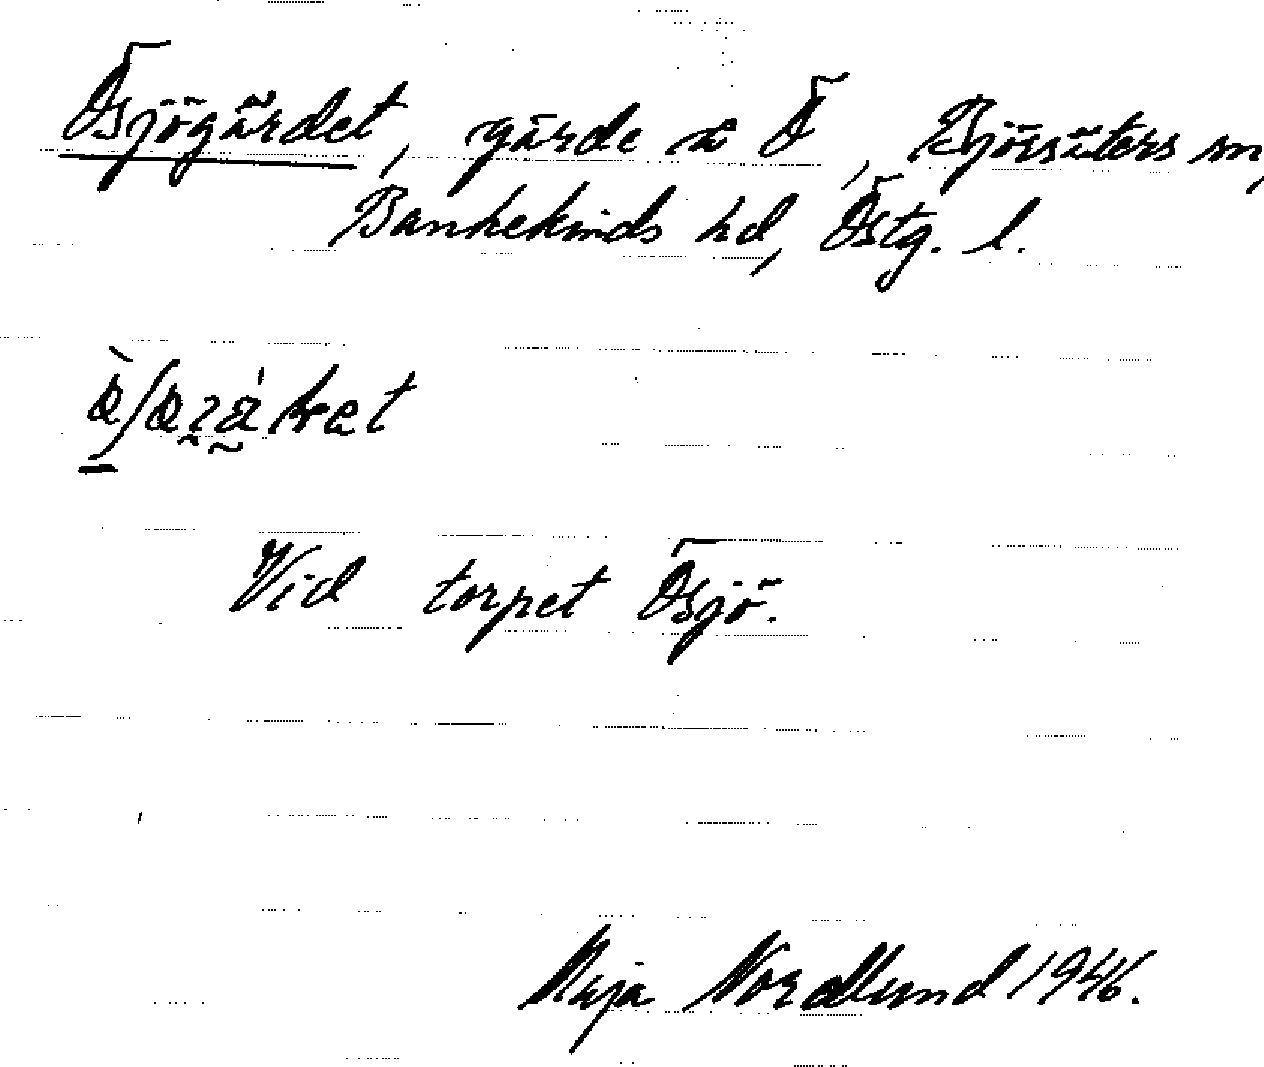 Ösjögärdet, gärde å Ö, Björsäters sn,
Bankekinds hd, Östg. l.
Vid torpet Ösjö.
Maja Nordlund 1946.